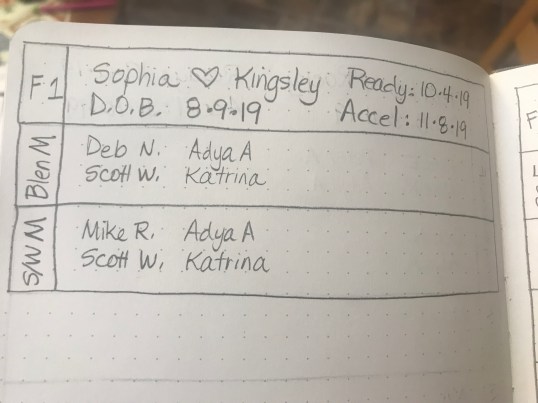 F1
Sophia ♡ Kingsley Ready: 10.4.19
D.O.B. 8.9.19 Accel: 11.8.19
Blen M
Deb N. Adya A
Scott W. Katrina
S/W M
Mike R. Adya A
Scott W. Katrina
F